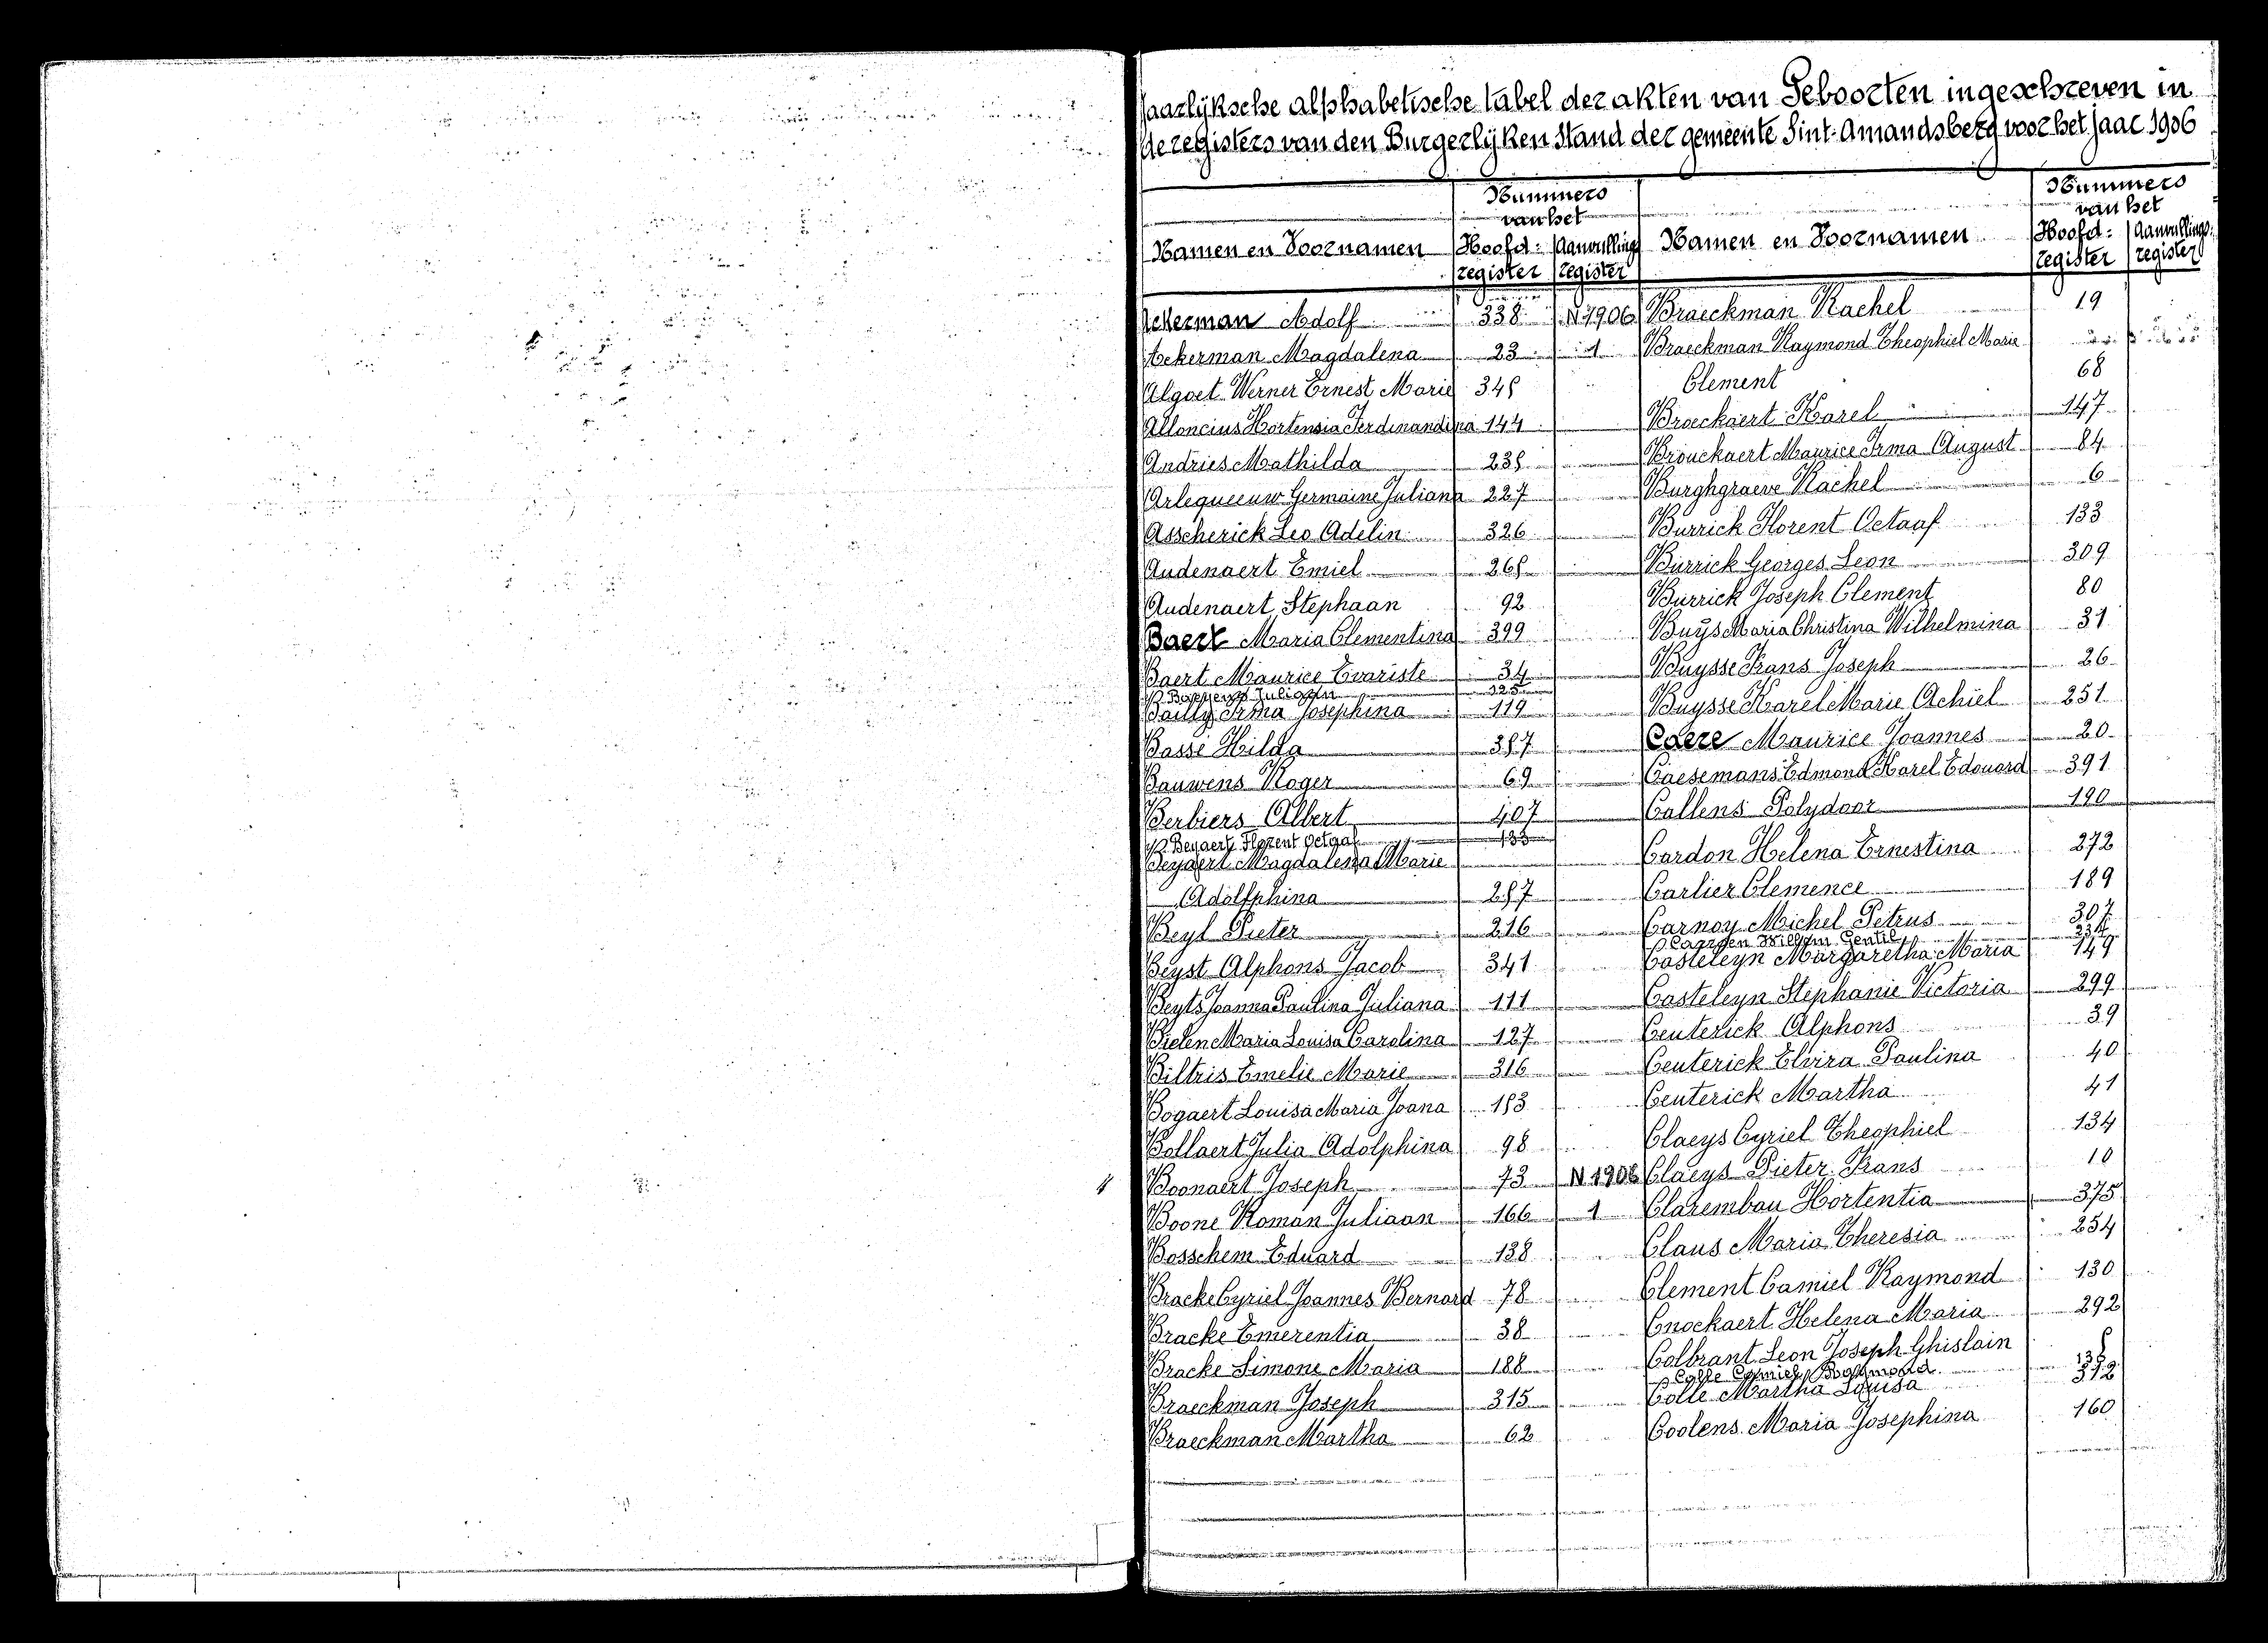 Jaarlÿksche alphabetische tabel der akten van Geboorten ingeschreven in
de registers van den Burgerlÿken Stand der gemeente Sint-Amandsberg voor het jaar 1906
Nummers
van het
Namen en Voornamen Hoofd= Aanvullings
register register
Ackerman Adolf 338 N 1906
Ackerman Magdalena 23 1
Algoet Werner Ernest Marie 348
Alloncius Hortensia Ferdinandina 144
Andries Mathilda 238
Arlequeeuw Germaine Juliana 227
Asscherick Leo Adelin 326
Audenaert Emiel 268
Audenaert Stephaan 92
Baert Maria Clementina 399
Baert Maurice Evariste 34
325
Bailly Irma Josephina 119
Basse Hilda 387
Bauwens Roger 69
Berbiers Albert 407
Beyaert Florent Octaaf 133
Beyaert Magdalena Marie
Adolfphina 287
Beyl Pieter 216
Beyst Alphons Jacob 341
Beyts Joanna Paulina Juliana 111
Bielen Maria Louisa Carolina 127
Biltris Emelie Marie 316
Bogaert Louisa Maria Joana 183
Bollaert Julia Adolphina 98
Boonaert Joseph 73 N 1906
Boone Roman Juliaan 166 1
Bosschem Eduard 138
Bracke Cyriel Joannes Bernard 78
Bracke Emerentia 38
Bracke Simone Maria 188
Braeckman Joseph 315
Braeckman Martha 62
Nummers
van het
Namen en Voornamen Hoofd= Aanvullings=
register register
Braeckman Rachel 19
Braeckman Raymond Theophiel Marie
Clement 68
Broeckaert Karel 147
Brouckaert Maurice Irma August 84
Burghgraeve Rachel 6
Burrick Florent Octaaf 133
Burrick Georges Leon 309
Burrick Joseph Clement 80
Buÿs Maria Christina Wilhelmina 31
Buysse Frans Joseph 26
Buysse Karel Marie Achiel 251
Caere Maurice Joannes 20
Caesemans Edmond Karel Edouard 391
Callens Polydoor 190
Cardon Helena Ernestina 272
Carlier Clemence 189
Carnoy Michel Petrus 307
Willem Gentil
Casteleyn Margaretha Maria 149
Casteleyn Stephanie Victoria 299
Ceuterick Alphons 39
Ceuterick Elvira Paulina 40
Ceuterick Martha 41
Claeys Cyriel Theophiel 134
Claeys Pieter Frans 10
Clarembau Hortentia 375
Claus Maria Theresia 254
Clement Camiel Raymond 130
Cnockaert Helena Maria 292
Colbrant Leon Joseph Ghislain 8
Colle Camiel Raymond 138
Colle Martha Louisa 312
Coolens Maria Josephina 160